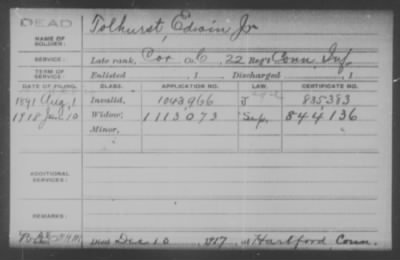 DEAD
NAME OF SOLDIER: Tolhurst, Edwin Jr
SERVICE: Late rank, Cor Co. C, 22 Reg't Conn. Inf.
TERM OF SERVICE: Enlisted , 1 Discharged , 1
DATE OF FILING. CLASS. APPLICATION NO. LAW. CERTIFICATE NO.
1891 Aug, 1 Invalid, 1043966 J 835383
1918 Jan 10 Widow, 1113073 Sep. 844136
Minor,
ADDITIONAL SERVICES:
REMARKS:
Died Dec 10 1917, at Hartford Conn.